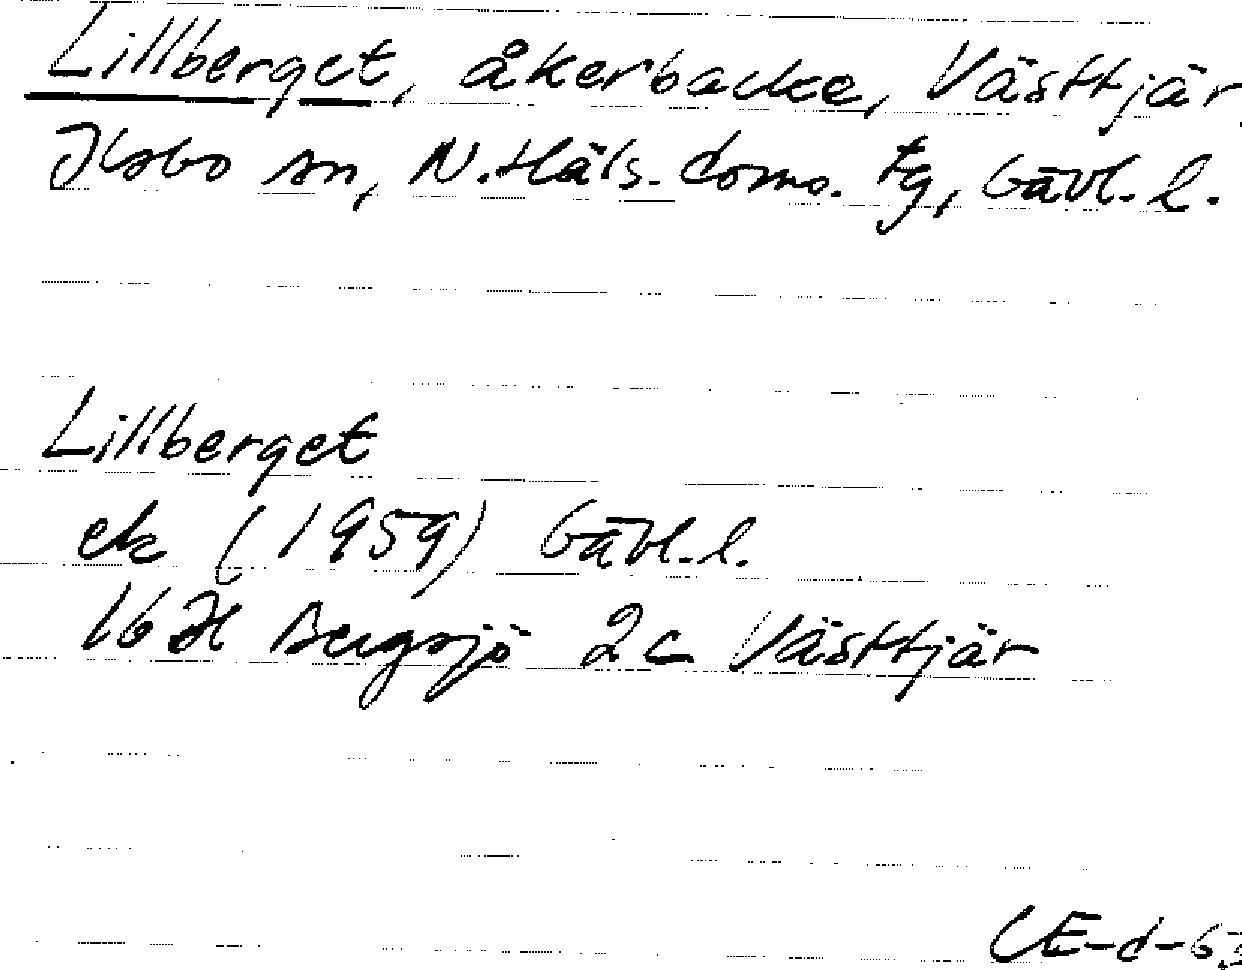 Lillberget, åkerbacke, Västtjär,
Ilsbo sn, N. Häls. doms. tg, Gävl. l.
Lillberget
ek (1959) Gävl. l.
16 H Bergsjö 2 c Västtjär
CE-d-63